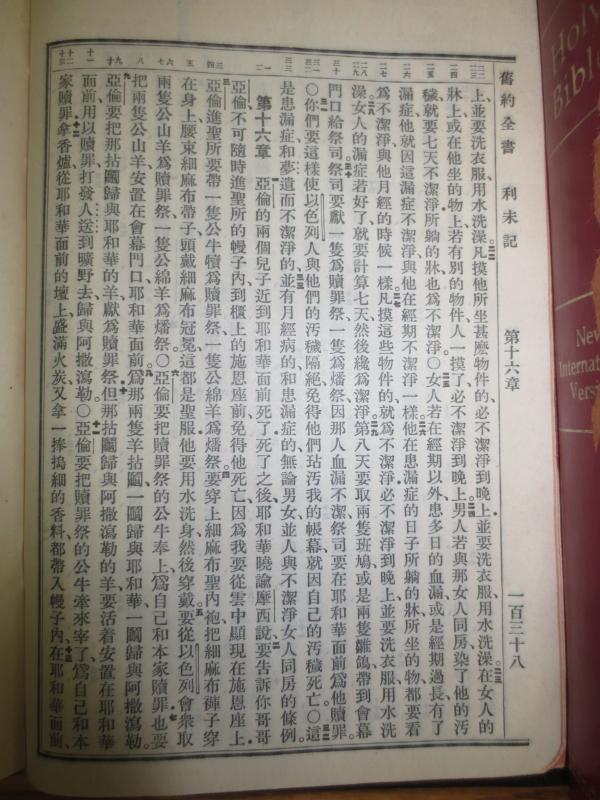 舊約全書　利未記　第十六章　一百三十八
上、並要洗衣服、用水洗澡、凡摸他所坐甚麽物件的、必不潔淨到晚上、並要洗衣服、用水洗澡、在女人的
牀上、或在他坐的物上、若有別的物件、人一摸了、必不潔淨到晚上、男人若與那女人同房、染了他的汚
穢、就要七天不潔淨、所躺的牀、也爲不潔淨○女人若在經期以外患多日的血漏、或是經期過長、有了
漏症、他就因這漏症不潔淨、與他在經期不潔淨一樣、他在患漏症的日子、所躺的牀、所坐的物、都要看
爲不潔淨、與他月經的時候一樣、凡摸這些物件的、就爲不潔淨、必不潔淨到晚上、並要洗衣服、用水洗
澡、女人的漏症若好了、就要計算七天、然後纔爲潔淨、第八天要取兩隻班鳩、或是兩隻雛鴿、帶到會幕
門口給祭司、祭司要獻一隻爲贖罪祭、一隻爲燔祭、因那人血漏不潔、祭司要在耶和華面前爲他贖罪。
○你們要這樣使以色列人與他們的汚穢隔絕、免得他們玷汚我的帳幕、就因自己的汚穢死亡○這
是患漏症和夢遺而不潔淨的、並有月經病的、和患漏症的、無論男女、並人與不潔淨女人同房的條例。
第十六章　亞倫的兩個兒子近到耶和華面前死了、死了之後、耶和華曉諭摩西說、要告訴你哥哥
亞倫、不可隨時進聖所的幔子內、到櫃上的施恩座前、免得他死亡、因爲我要從雲中顯現在施恩座上。
亞倫進聖所要帶一隻公牛犢爲贖罪祭、一隻公綿羊爲燔祭、要穿上細麻布聖內袍、把細麻布褲子穿
在身上、腰束細麻布帶子、頭戴細麻布冠冕、這都是聖服、他要用水洗身、然後穿戴、要從以色列會衆取
兩隻公山羊爲贖罪祭、一隻公綿羊爲燔祭。○亞倫要把贖罪祭的公牛奉上、爲自己和本家贖罪、也要
把兩隻公山羊安置在會幕門口、耶和華面前、爲那兩隻羊拈鬮、一鬮歸與耶和華、一鬮歸與阿撒瀉勒。
亞倫要把那拈鬮歸與耶和華的羊、獻爲贖罪祭、但那拈鬮歸與阿撒瀉勒的羊、要活着安置在耶和華
面前、用以贖罪、打發人送到曠野去、歸與阿撒瀉勒。○亞倫要把贖罪祭的公牛牽來宰了、爲自己和本
家贖罪、拿香爐、從耶和華面前的壇上盛滿火炭、又拿一捧搗細的香料、都帶入幔子內、在耶和華面前、
Holy Bible
New International Version